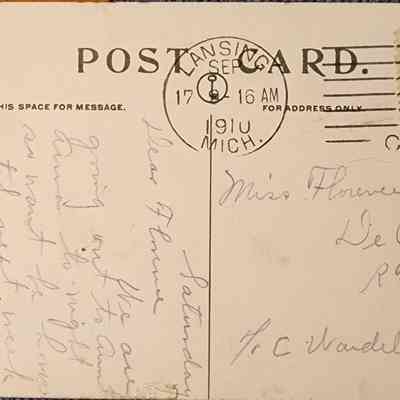 POST CARD.
THIS SPACE FOR MESSAGE.
FOR ADDRESS ONLY.
LANSING
SEP
17 - 16 AM
1910
MICH.
Saturday
Dear Florence
We are
going out to Aunt
to-night
so want be home
next week
Miss Florence
De
R
c/o C